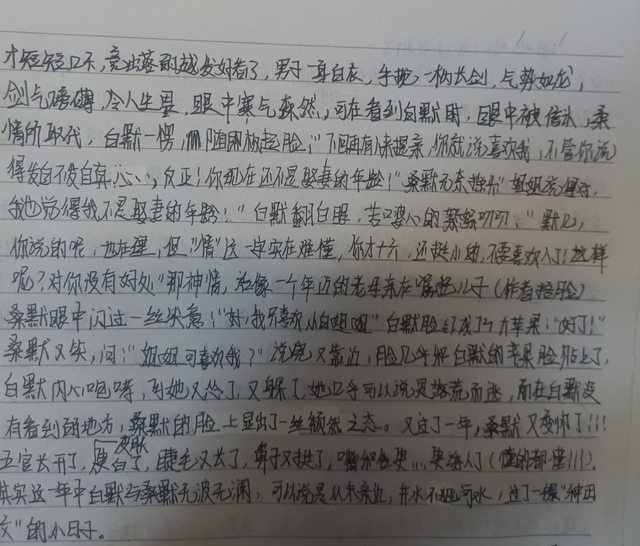 才短短几天,竟出落的越发好看了,男子一身白衣,手拖一柄长剑,气势如龙,
剑气磅礴,令人生畏,眼中寒气森然,可在看到白默时,眼中被信,柔
情所取代,白默一愣,随即板起脸:"下回再有人来提亲,你就说喜欢我,不管你说
得发自不发自真心,反正!你现在还不是娶妻的年龄!"桑默无奈"姐姐说得对,
我也觉得我不是娶妻的年龄!"白默翻白眼,苦口婆心的絮絮叨叨:"默儿,
你说的呢,也在理,但"情"这一字实在难懂,你才十六,还挺小的,不要喜欢人了!这样
呢?对你没有好处"那神情,好像一个年迈的老母亲在儿子(作者捂脸)
桑默眼中闪过一丝失意:"好,我只喜欢小白姐姐"白默脸红成了个大苹果:"好了!"
桑默又笑,问:"姐姐可喜欢我?"说完又靠近,脸几乎把白默的苹果脸贴上了,
白默内心咆哮,到她又怂了,又躲了,她几乎可以说是落荒而逃,而在白默没
有看到的地方,桑默的脸上显出了一丝颓然之态。又过了一年,桑默又变帅了!!!
五官长开了,皮肤更白了,睫毛又长了,鼻子又挺了,嘴,要迷人了(懂的都懂!!!).
其实这一年中白默与桑默无波无澜,可以说是从未亲近,井水不犯河水,过了一段"种田
文"的小日子。